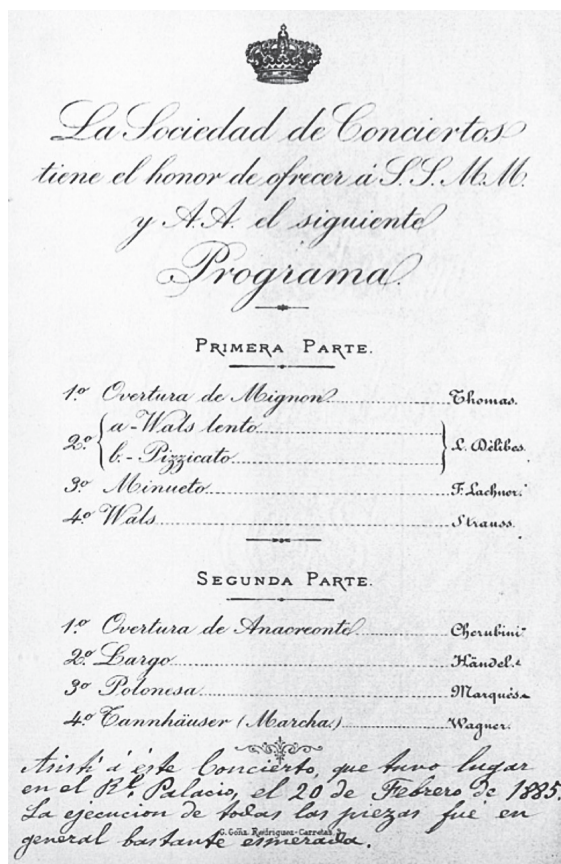 La Sociedad de Conciertos
tiene el honor de ofrecer á S.S.M.M.
y A.A. el siguiente
Programa.
PRIMERA PARTE.
1º Overtura de Mignon Thomas.
2º { a - Wals lento
b. - Pizzicato } L. Délibes.
3º Minueto F. Lachner.
4º Wals Strauss.
SEGUNDA PARTE.
1º Overtura de Anacreonte Cherubini
2º Largo Händel.
3º Polonesa Marqués
4º Tannhäuser (Marcha.) Wagner.
Asistí á éste Concierto, que tuvo lugar
en el Rl. Palacio, el 20 de Febrero de 1885.
La ejecucion de todas las piezas fué en
general bastante esmerada.
G. Goña. Rodriguez-Carretas,